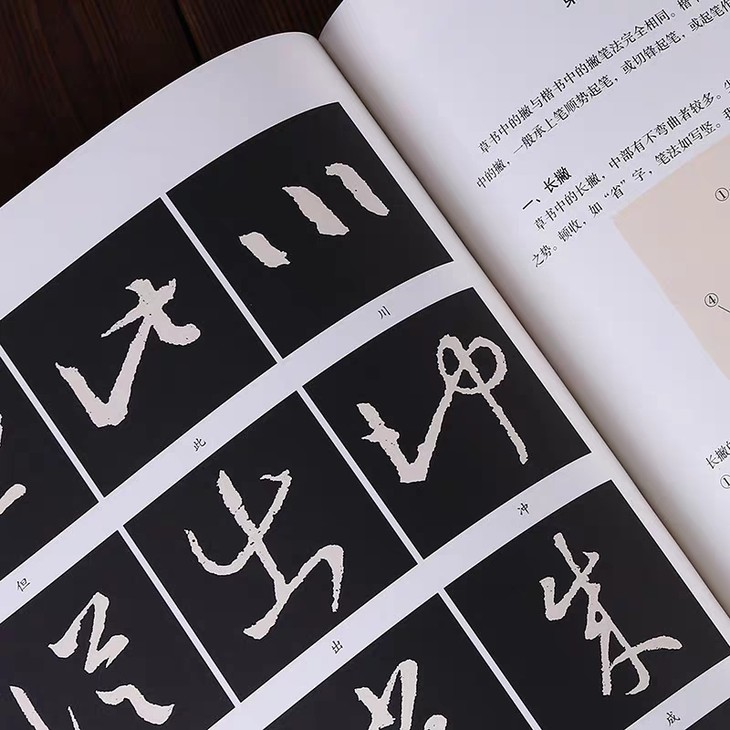 川
此
冲
但
出
成
草书中的撇与楷书中的撇笔法完全相同。楷
中的撇，一般承上笔顺势起笔，或切锋起笔，或起笔作
一、长撇
草书中的长撇，中部有不弯曲者较多。
之势。顿收，如“省”字，笔法如写竖。我
①
④
长撇的
①